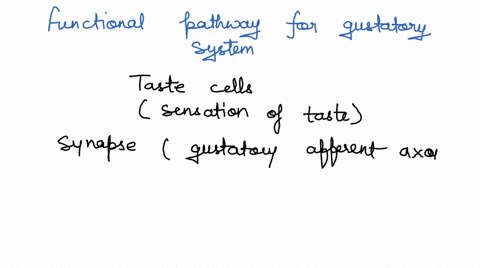 functional pathway for gustatory
system
Taste cells
(sensation of taste)
Synapse ( gustatory afferent axo